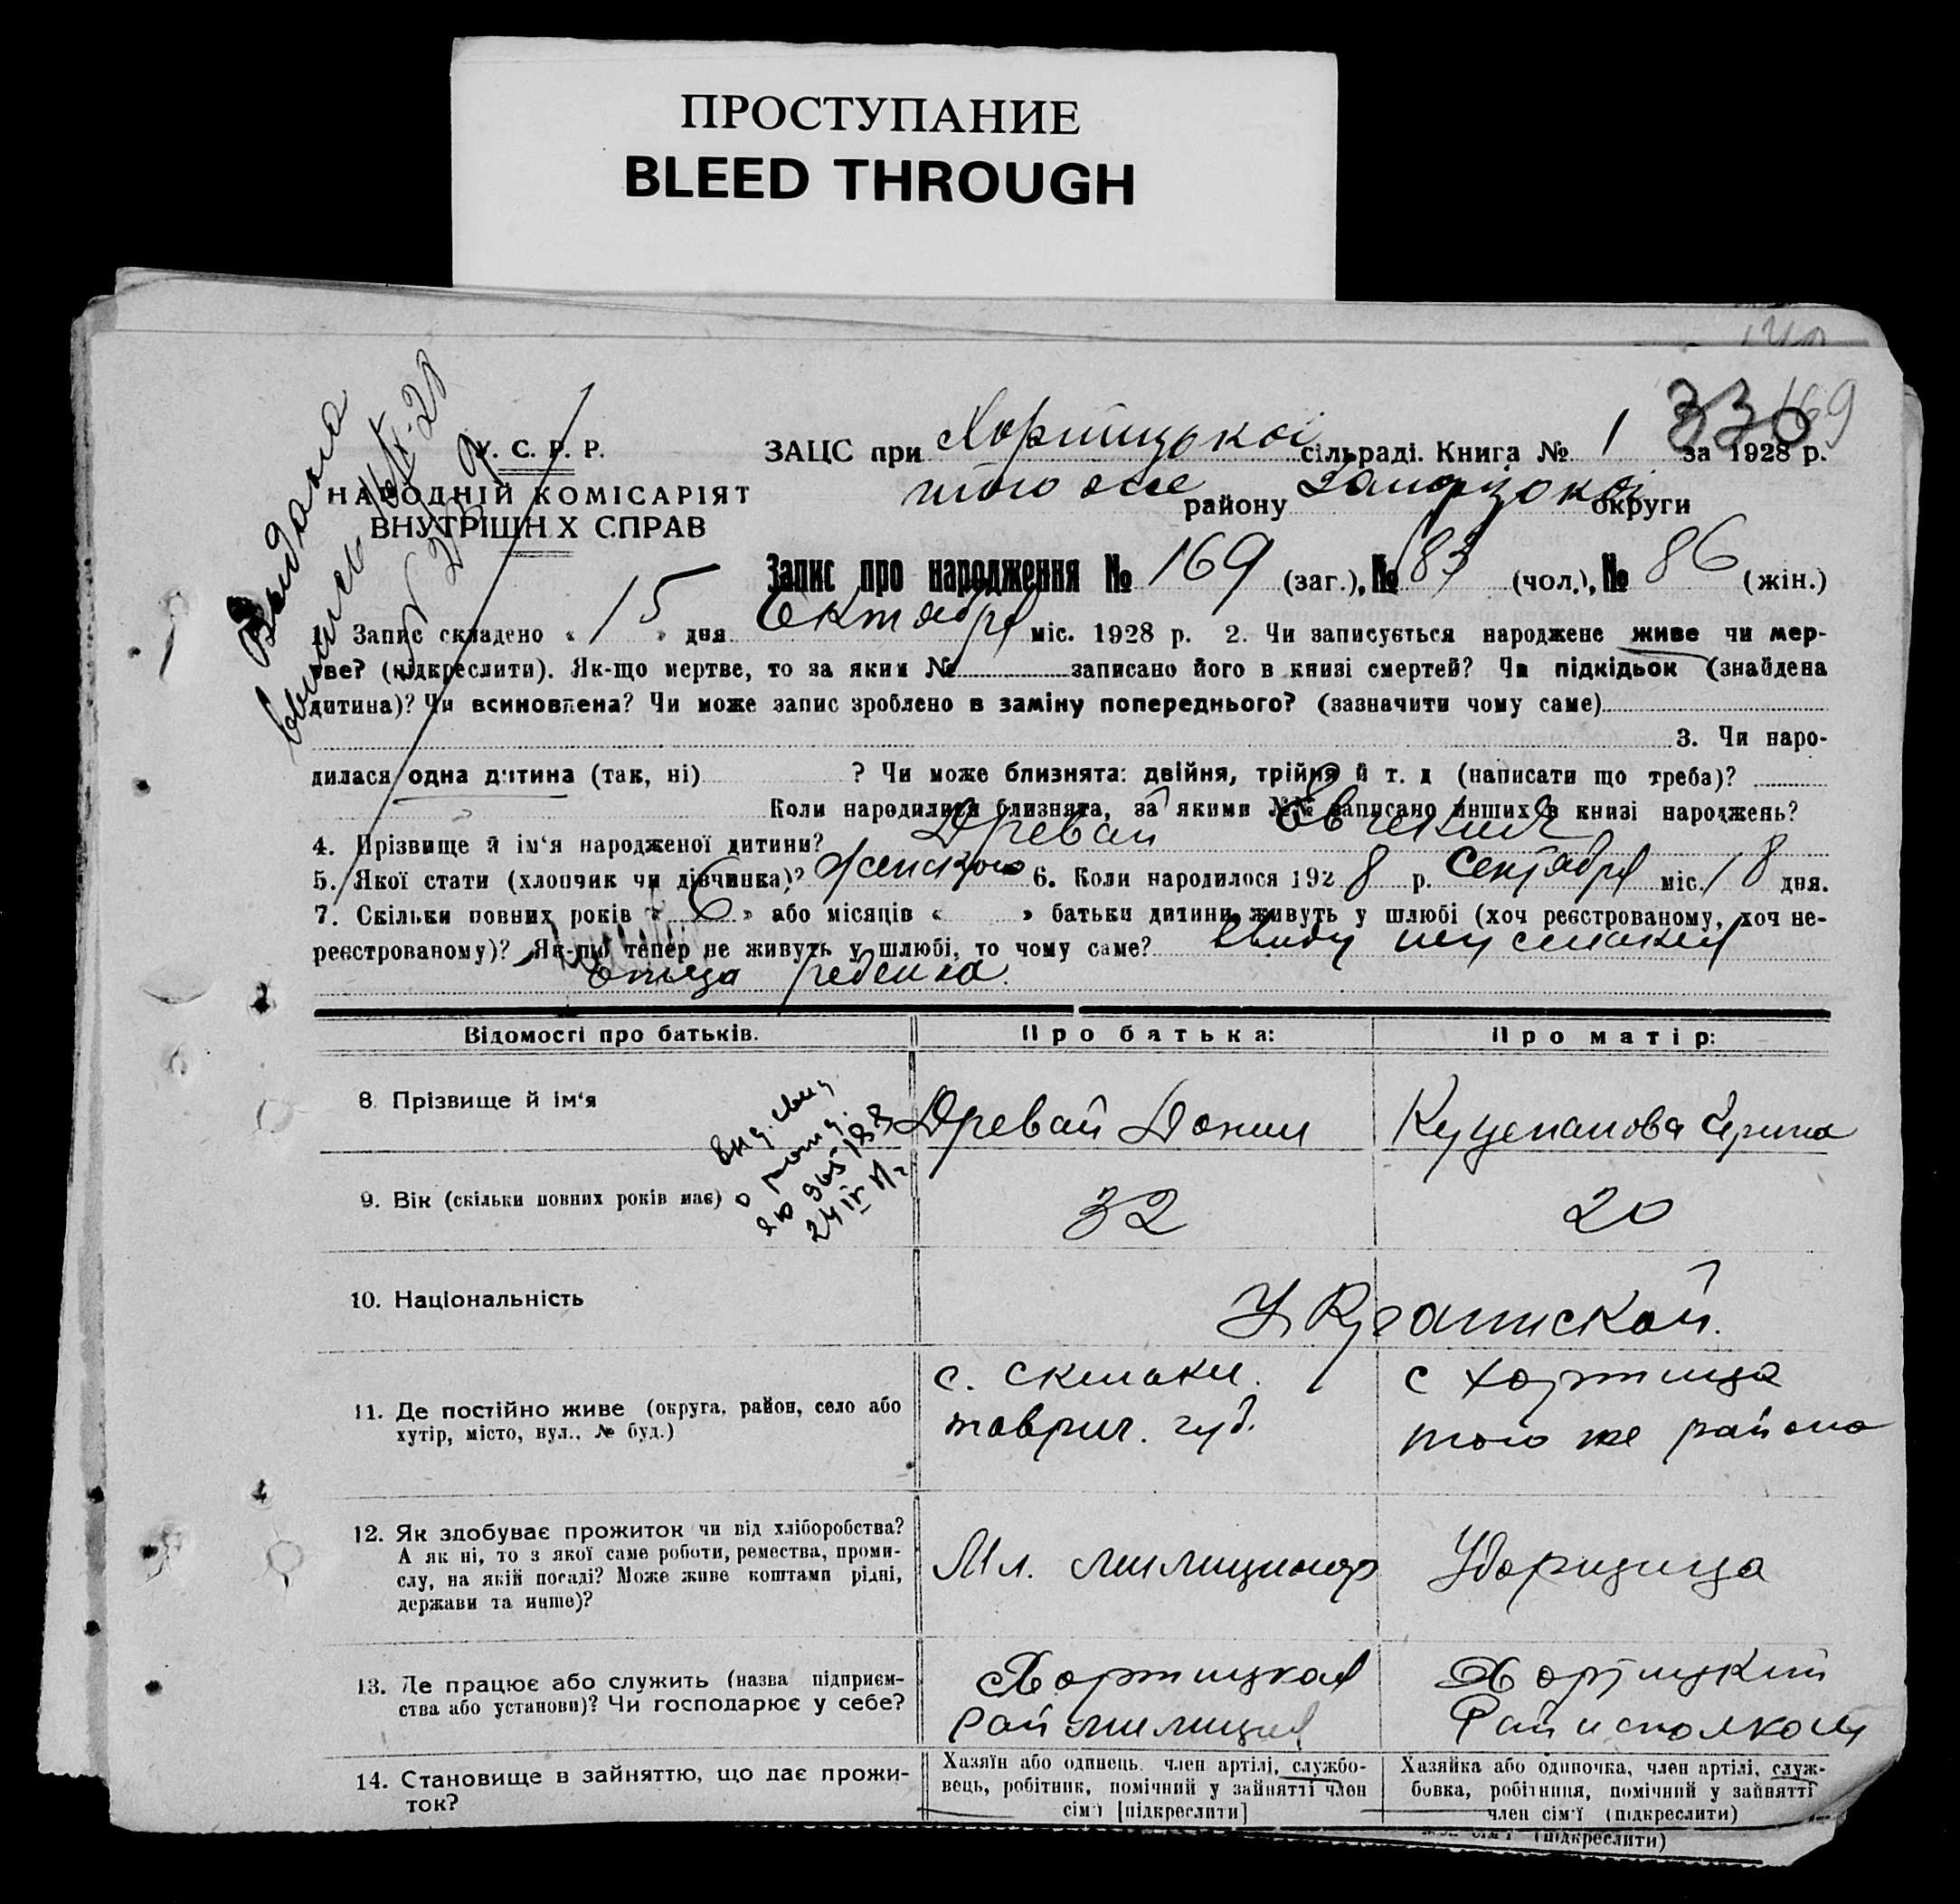 ПРОСТУПАНИЕ
BLEED THROUGH
169
330
У. С. Р. Р.
НАРОДНІЙ КОМІСАРІЯТ
ВНУТРІШН Х СПРАВ
Видано
ЗАЦС при Хортицькоі сільраді. Книга № 1 за 1928 р.
того же району округи
Запис про народження № 169 (заг.), № 83 (чол.), № 86 (жін.)
1. Запис складено « 15 » дня Октября міс. 1928 р. 2. Чи записується народжене живе чи мер-
тве? (підкреслити). Як-що мертве, то за яким № записано його в книзі смертей? Чи підкідьок (знайдена
дитина)? Чи всиновлена? Чи може запис зроблено в заміну попереднього? (зазначити чому саме)
3. Чи наро-
дилася одна дитина (так, ні) ? Чи може близнята: двійня, трійня й т. д (написати що треба)?
Коли народилися близнята, за якими №№ записано инших в книзі народжень?
4. Прізвище й ім‘я народженої дитини? Древай
5. Якої стати (хлопчик чи дівчинка)? Женского 6. Коли народилося 1928 р. Сентября міс. 18 дня.
7. Скільки повних років « 6 » або місяців « » батьки дитини живуть у шлюбі (хоч реєстрованому, хоч не-
реєстрованому)? Як-що тепер не живуть у шлюбі, то чому саме? Ввиду
Отца ребенка.
Відомості про батьків. Про батька: Про матір:
8. Прізвище й ім‘я Древай Донии Куцепалова Ирина
9. Вік (скільки повних років має) 32 20
10. Національність Украинской.
11. Де постійно живе (округа, район, село або
хутір, місто, вул., № буд.)
с.
таврич. губ.
с Хортица
того же района
12. Як здобуває прожиток чи від хліборобства?
А як ні, то з якої саме роботи, ремества, проми-
слу, на якій посаді? Може живе коштами рідні,
держави та инше)?
Мл. милиционер
Уборщица
13. Де працює або служить (назва підприєм-
ства або установи)? Чи господарює у себе?
Хортицкая
Раймилиция
Хортицкий
Райисполком
14. Становище в зайняттю, що дає прожи-
ток?
Хазяїн або одинець, член артілі, службо-
вець, робітник, помічний у зайнятті член
сім‘ї [підкреслити]
Хазяйка або одиночка, член артілі, служ-
бовка, робітниця, помічний у зайнятті
член сім‘ї (підкреслити)
(підкреслити)